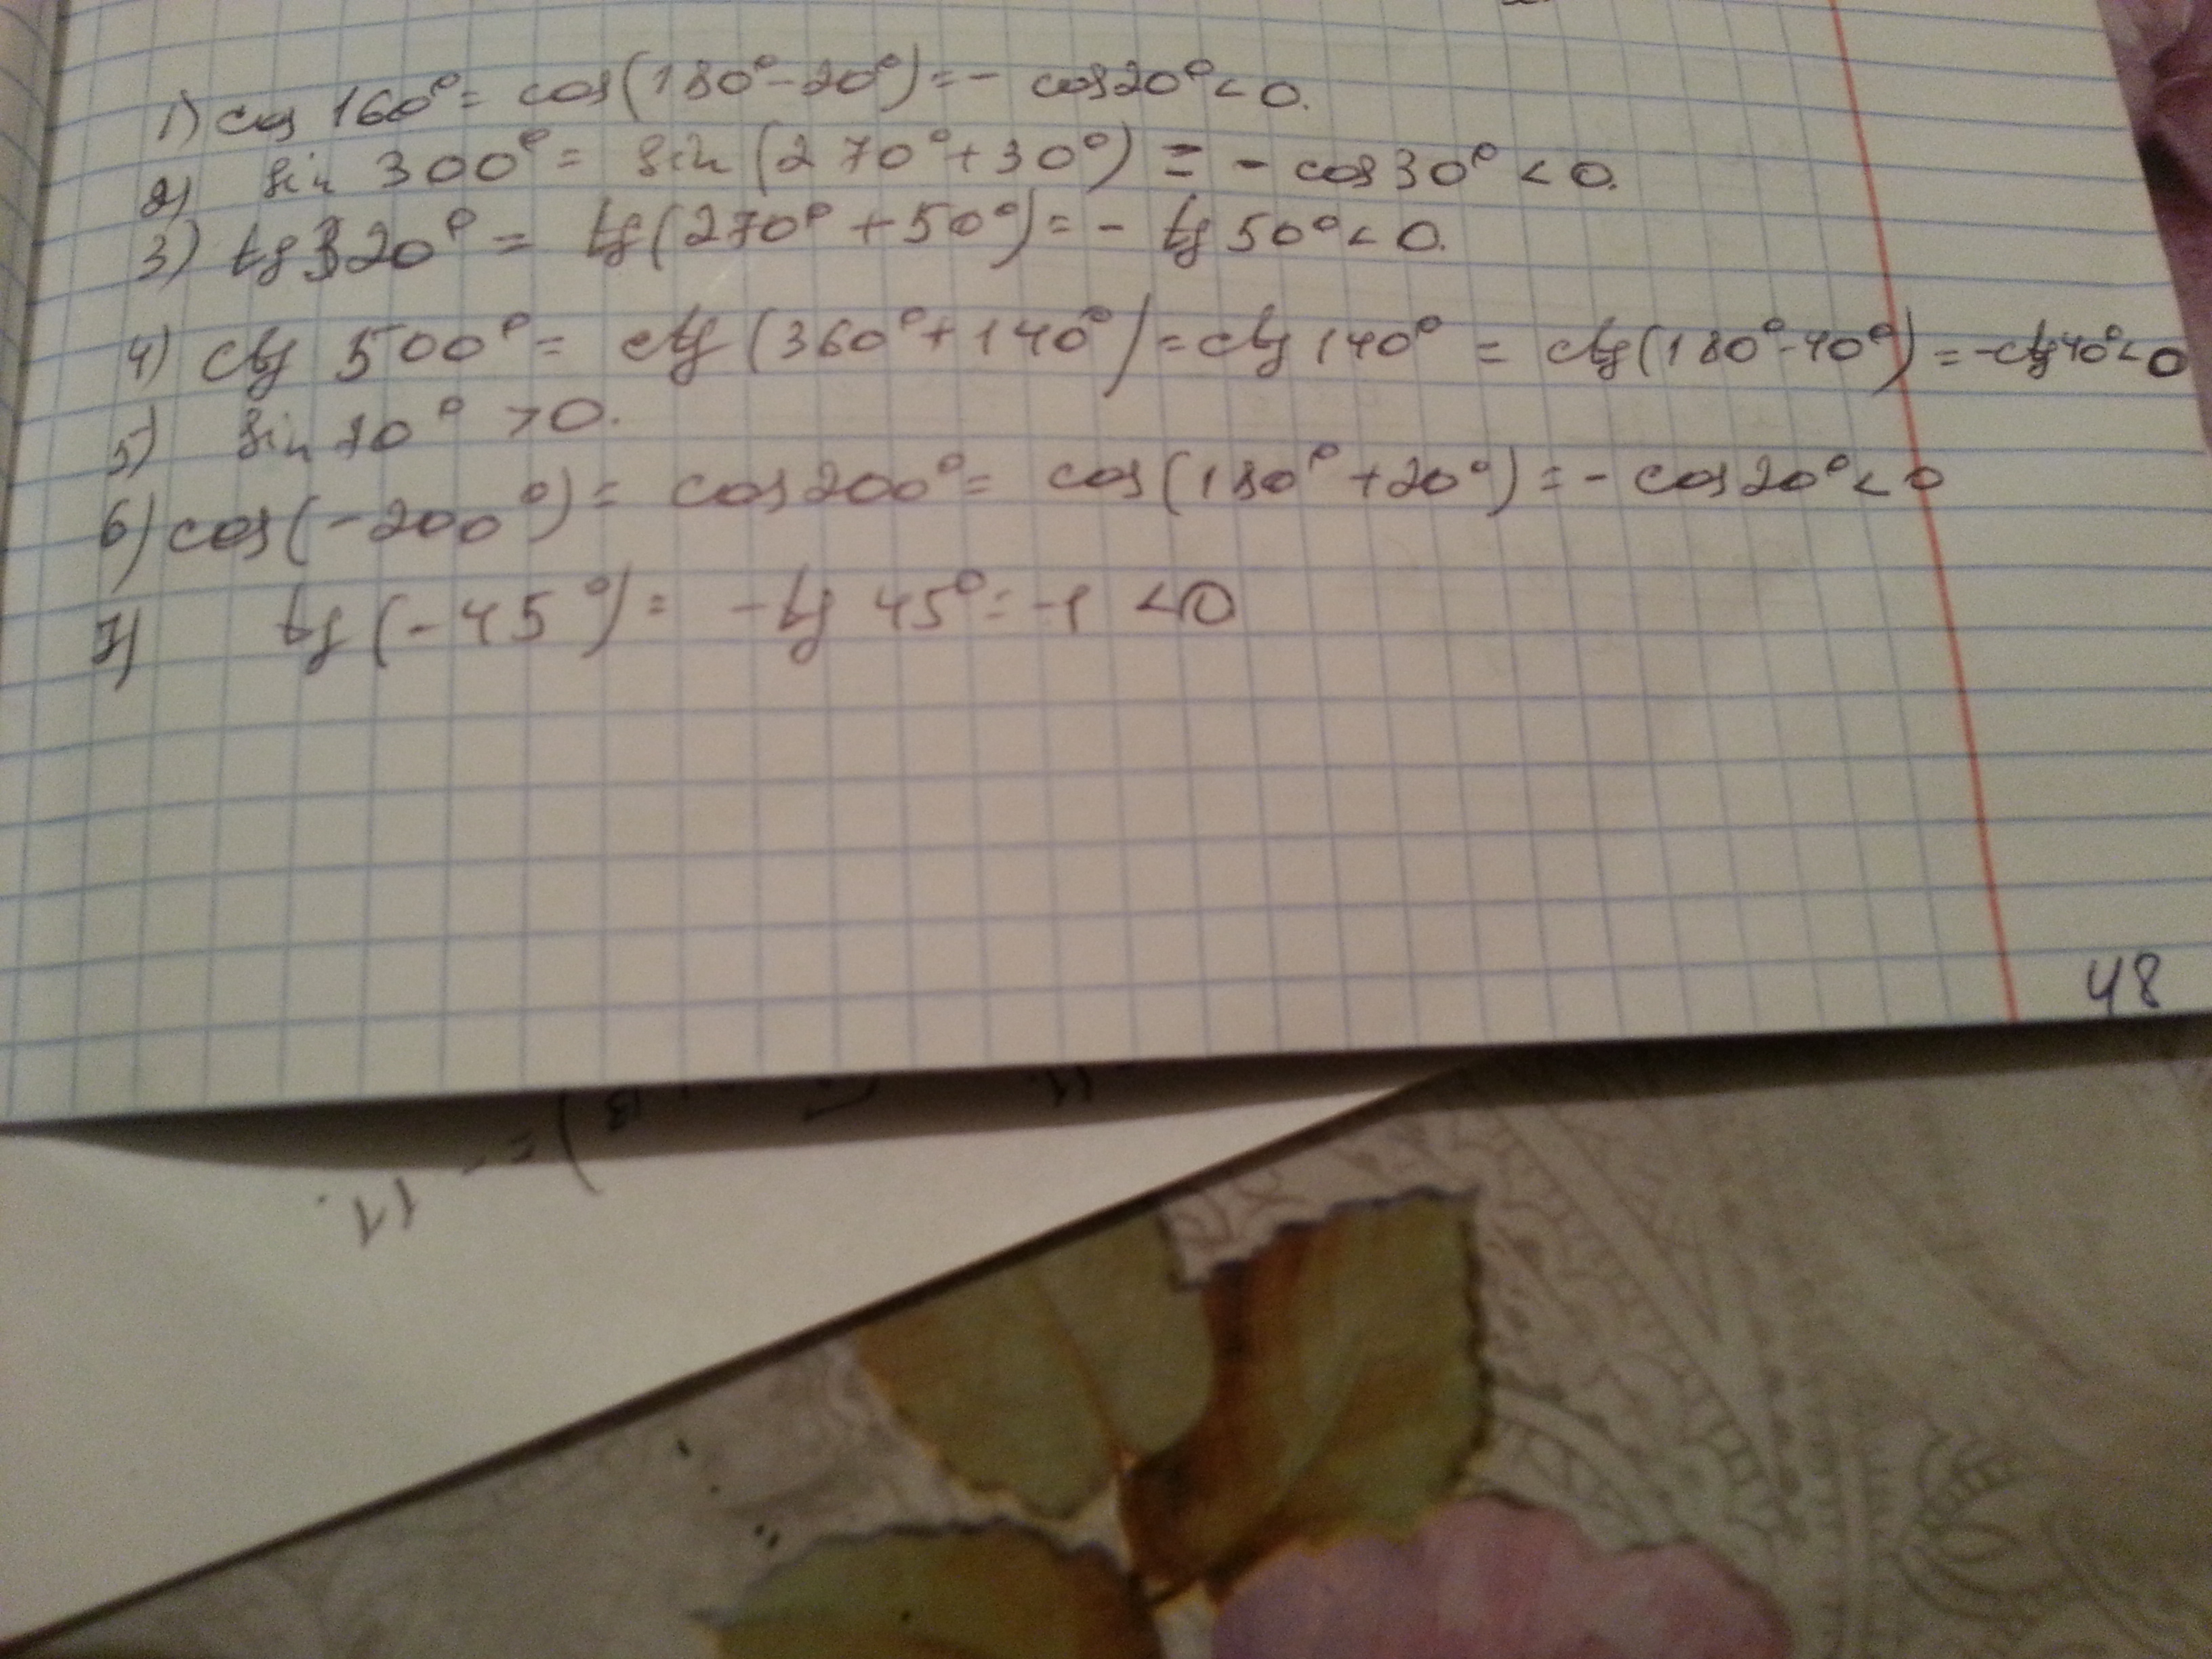 1) cos 160° = cos(180° - 20°) = - cos20° < 0.
2) sin 300° = sin (270° + 30°) = - cos30° < 0.
3) tg320° = tg(270° + 50°) = - tg 50° < 0.
4) ctg 500° = ctg (360° + 140°) = ctg 140° = ctg(180° - 40°) = -ctg40° < 0
5) sin 70° > 0.
6) cos(-200°) = cos200° = cos(180° + 20°) = - cos20° < 0
7) tg(-45°) = -tg 45° = -1 < 0
48
) = - 11.